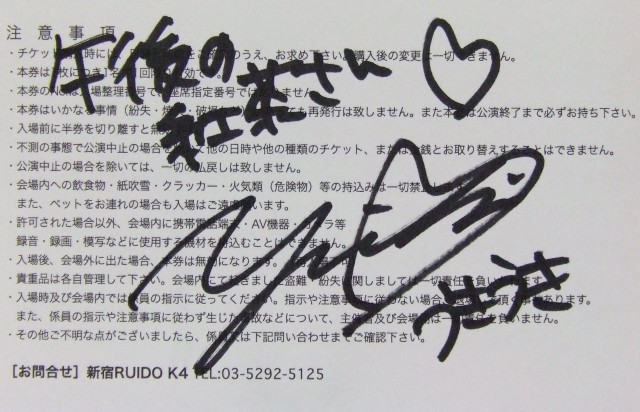 注意事項
午後の
紅茶さん
うさうさ
・チケット
のうえ、お求め下さい。購入後の変更は一切できません。
・本券は1枚につき1名
・本券の
整理番号で、座席指定番号では
ません。
・本券はいかなる事情（紛失・
ても再発行は致しません。また本
は公演終了まで必ずお持ち下さい。
・入場前に半券を切り離すと無
・不測の事態で公演中止の場合
他の日時や他の種類のチケット、または金銭とお取り替えすることはできません。
・公演中止の場合を除いては、一切の払戻しは致しません。
・会場内への飲食物・紙吹雪・クラッカー・火気類（危険物）等の持込みは一切禁止し
また、ペットをお連れの場合も入場はご遠慮
・許可された場合以外、会場内に携帯電話端末・AV機器・カメラ等
録音・録画・模写などに使用する機材を持込むことはできません。
・入場後、会場外に出た場合、本券は無効になります。
貴重品は各自管理して下さい。会場内にて起きました盗難・紛失
関しましては一切責任
負いかねます。
・入場時及び会場内では係員の指示に従ってください。指示や注意事項に従わない場合
あります。
また、係員の指示や注意事項に従わず生じた事故などについて、主催者及び会場側は一切責任を負いません。
・その他ご不明な点がございましたら、係員又は下記問い合わせまでご確認下さい。
［お問合せ］新宿RUIDO K4 TEL:03-5292-5125